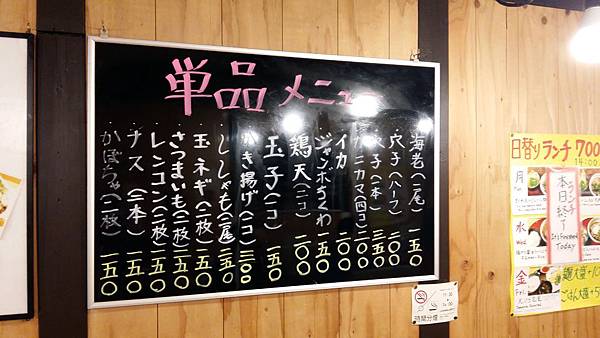 単品メニュー
海老(二尾) 一五〇
穴子(ハーフ) 二〇〇
穴子(一本) 三五〇
カニカマ(四コ) 二〇〇
イカ 二〇〇
ジャンボちくわ 一五〇
鶏天(二コ) 一〇〇
玉子(一コ) 一五〇
かき揚げ(一コ) 三〇〇
ししゃも(二尾) 一五〇
玉ネギ(二枚) 一五〇
さつまいも(二枚) 一五〇
レンコン(二枚) 一五〇
ナス(二本) 一五〇
かぼちゃ(二枚) 一五〇
日替りランチ 700
14:00
月
水
Wed
金
Fri
ランチ
本日終了
It's Finished
Today
麺大盛+10
ごはん大盛+5
時間分煙